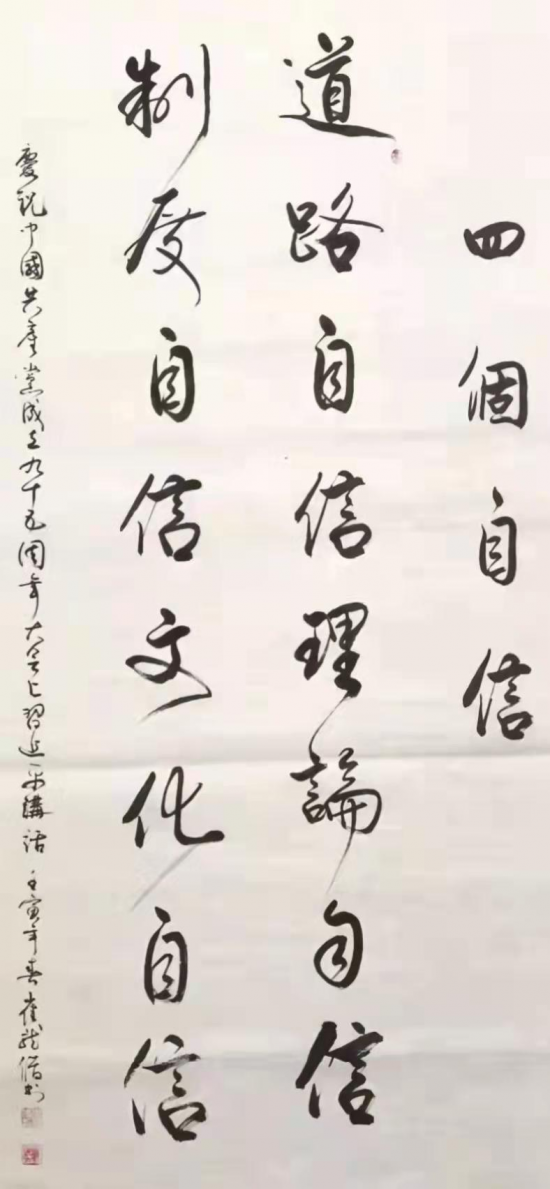 四個自信
道路自信理論自信
制度自信文化自信
慶祝中國共產黨成立九十五周年大会上習近平講話 壬寅年春崔龍